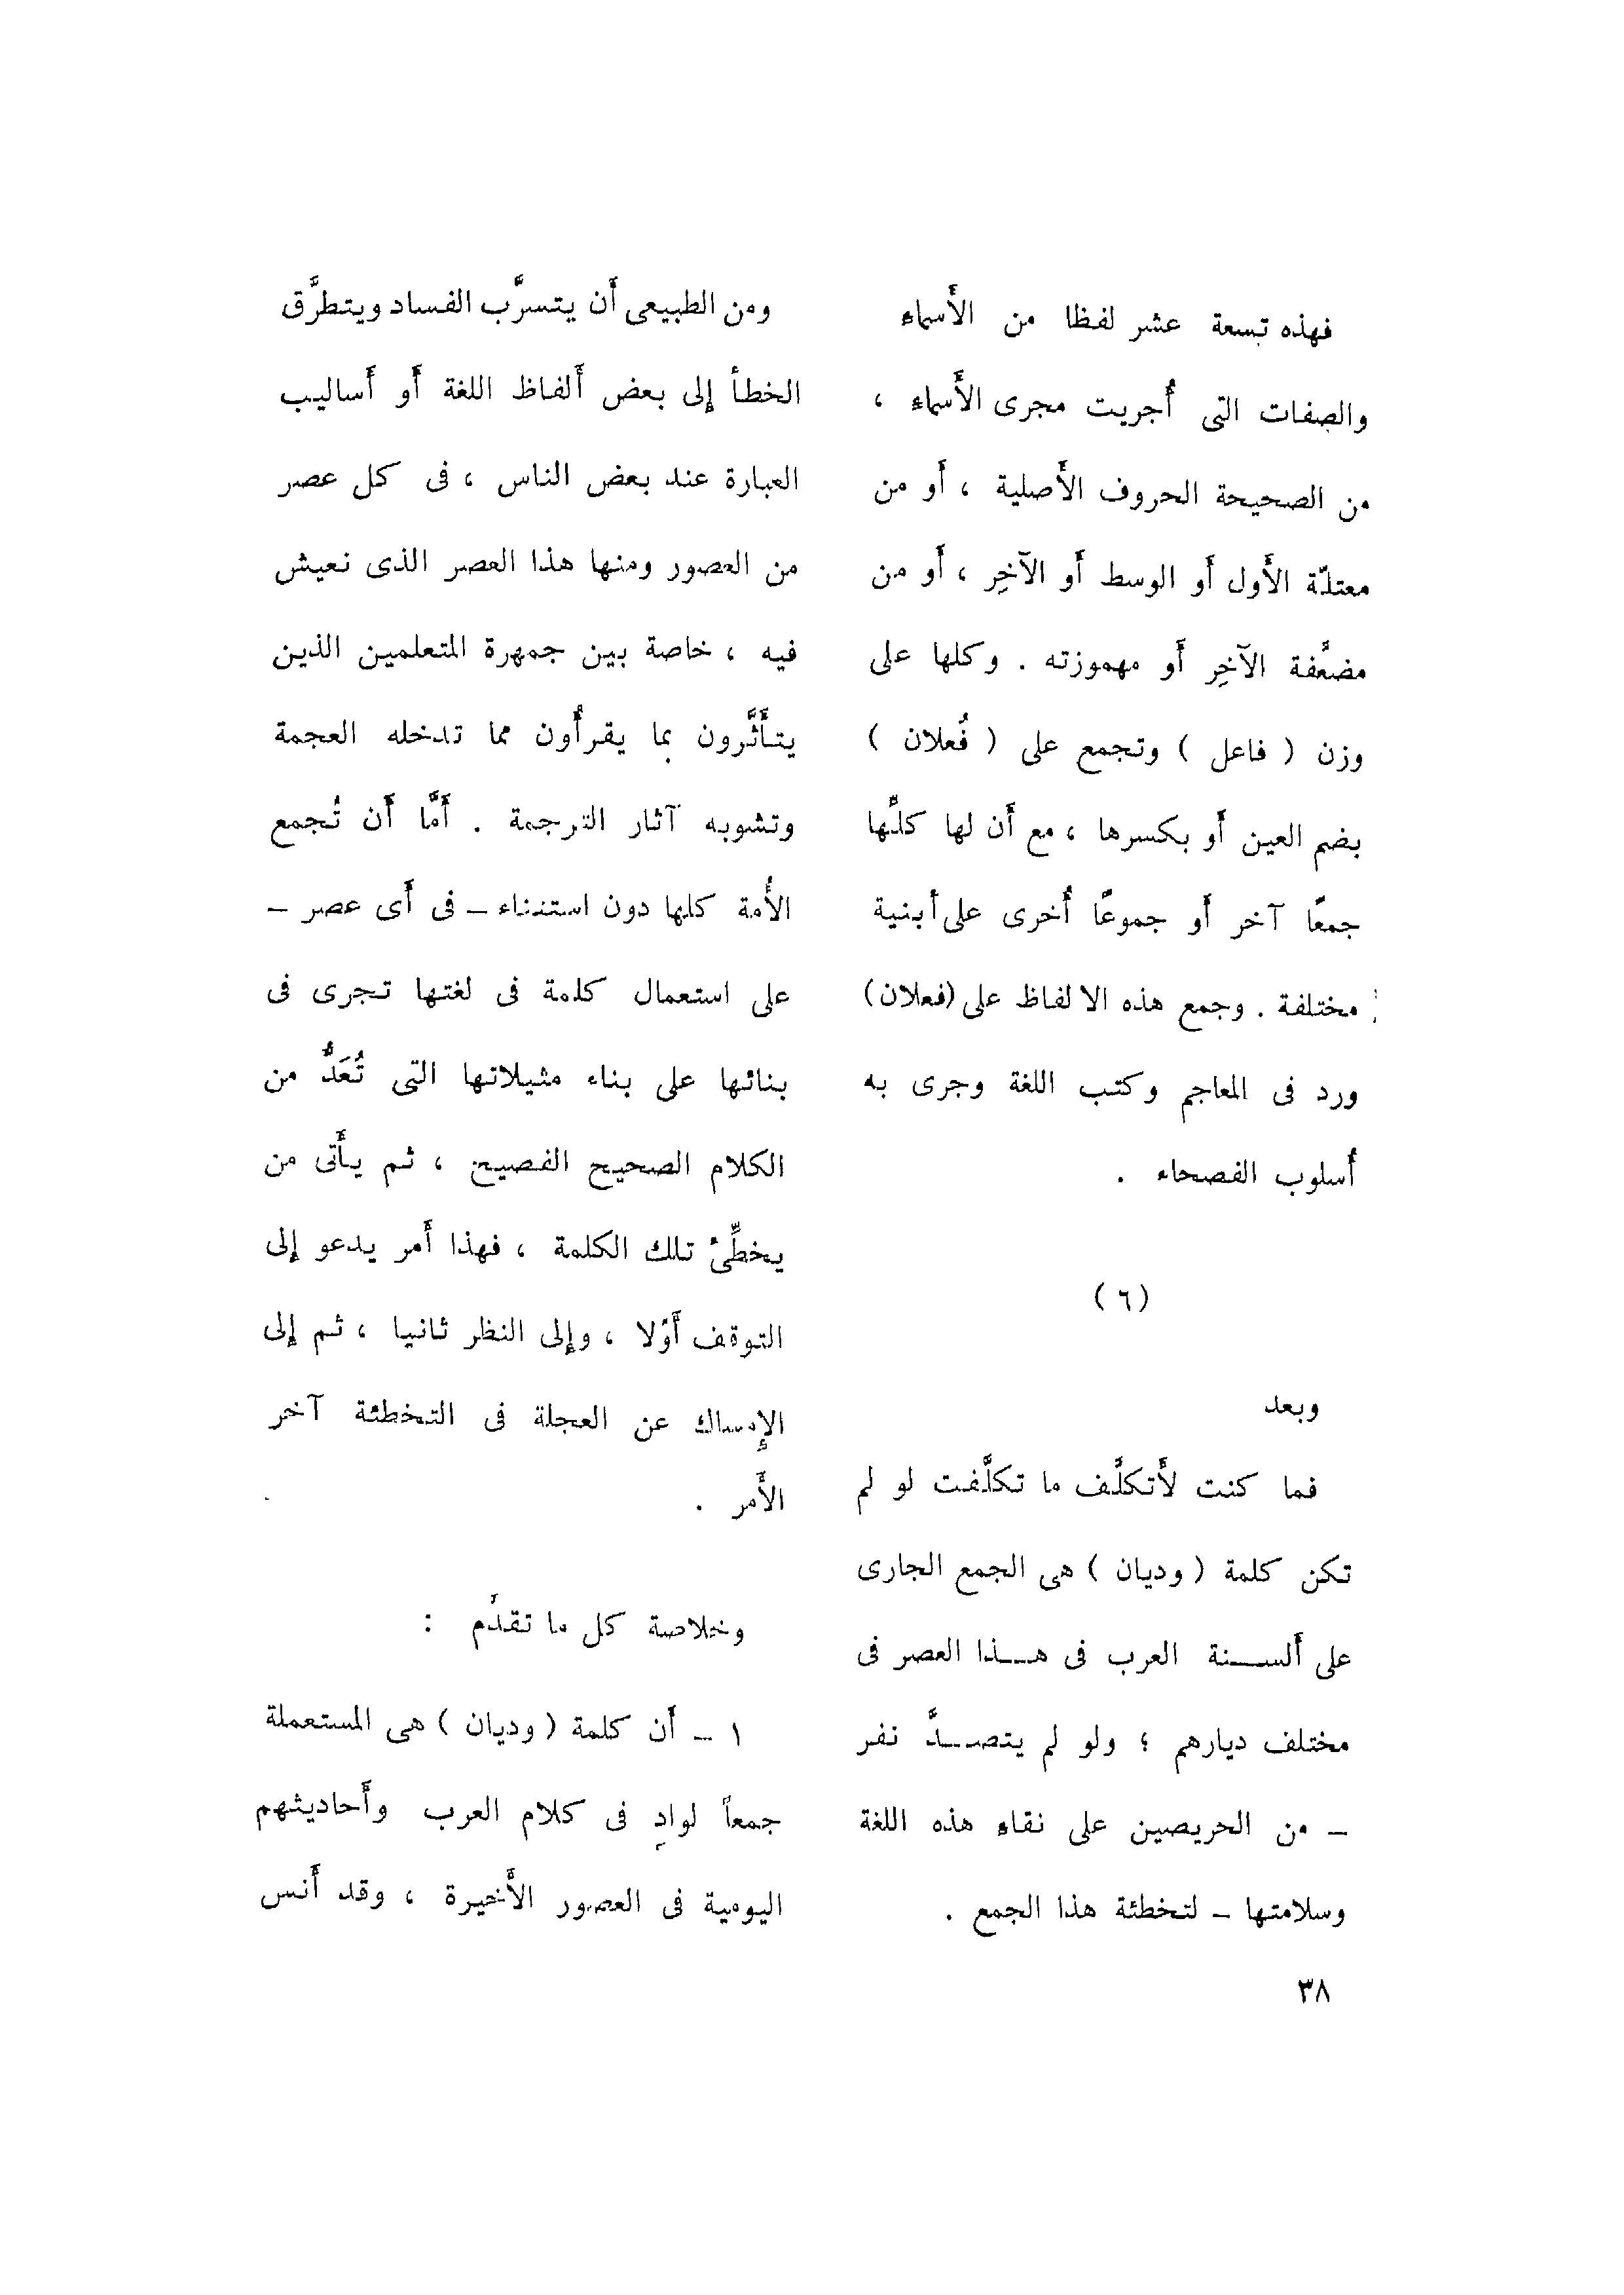 فهذه تسعة عشر لفظا من الأَسماء
والصفات التى أُجريت مجرى الأَسماء ،
من الصحيحة الحروف الأَصلية ، أَو من
معتلّة الأَول أَو الوسط أَو الآخِر ، أَو من
مضعَّفة الآخِر أَو مهموزته . وكلها على
وزن ( فاعل ) وتجمع على ( فُعلان )
بضم العين أَو بكسرها ، مع أَن لها كلَّها
جمعًا آخر أَو جموعًا أُخرى على أبنية
مختلفة . وجمع هذه الالفاظ على (فعلان)
ورد فى المعاجم وكتب اللغة وجرى به
أُسلوب الفصحاء .
(٦)
وبعد
فما كنت لأَتكلَّف ما تكلَّفت لو لم
تكن كلمة ( وديان ) هى الجمع الجارى
على أَلســـنة العرب فى هـــذا العصر فى
مختلف ديارهم ؛ ولو لم يتصـــدَّ نفر
ـ من الحريصين على نقاء هذه اللغة
وسلامتها ـ لتخطئة هذا الجمع .
ومن الطبيعى أَن يتسرَّب الفساد ويتطرَّق
الخطأ إلى بعض أَلفاظ اللغة أَو أَساليب
العبارة عند بعض الناس ، فى كل عصر
من العصور ومنها هذا العصر الذى نعيش
فيه ، خاصة بين جمهرة المتعلمين الذين
يتأَثَّرون بما يقرأُون مما تدخله العجمة
وتشوبه آثار الترجمة . أَمَّا أَن تُجمع
الأُمة كلها دون استثناء ـ فى أَى عصر ـ
على استعمال كلمة فى لغتها تجرى فى
بنائها على بناء مثيلاتها التى تُعَدُّ من
الكلام الصحيح الفصيح ، ثم يأَتى من
يخطِّئُ تلك الكلمة ، فهذا أَمر يدعو إلى
التوقف أَوّلا ، وإلى النظر ثانيا ، ثم إلى
الإمساك عن العجلة فى التخطئة آخر
الأَمر .
وخلاصة كل ما تقدّم :
١ ـ أَن كلمة ( وديان ) هى المستعملة
جمعاً لوادٍ فى كلام العرب وأَحاديثهم
اليومية فى العصور الأَخيرة ، وقد أَنس
٣٨